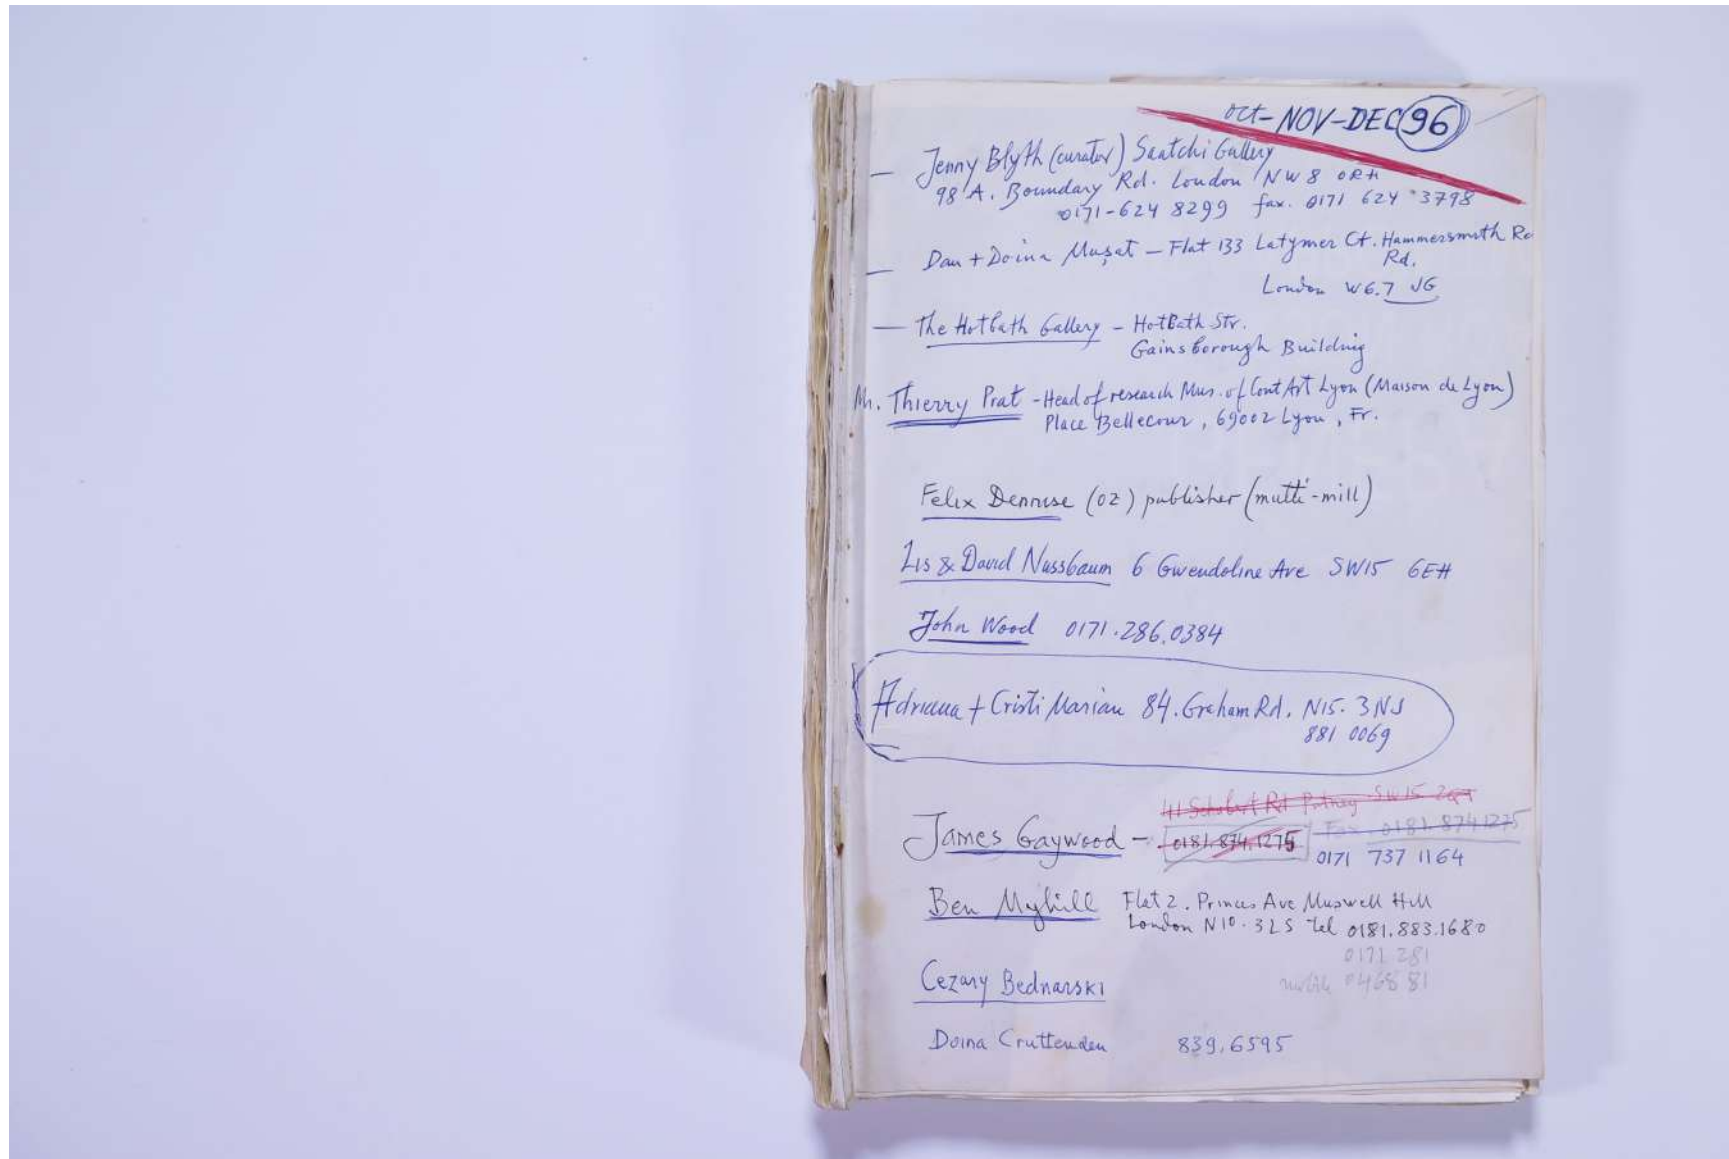 oct-NOV-DEC 96
— Jenny Blyth (curator) Saatchi Gallery
98 A. Boundary Rd. London NW8 0RH
0171-624 8299 fax. 0171 624 3798
— Dan + Doina Mușat — Flat 133 Latymer Ct. Hammersmith Rd
Rd.
London W6.7 JG
— The Hotbath Gallery - HotBath Str.
Gainsborough Building
Mr. Thierry Prat - Head of research Mus. of Cont Art Lyon (Maison de Lyon)
Place Bellecour, 69002 Lyon, Fr.
Felix Dennise (OZ) publisher (multi-mill)
Lis & David Nussbaum 6 Gwendoline Ave SW15 6EH
John Wood 0171.286.0384
Adriana + Cristi Marian 84. Graham Rd. N15. 3NJ
881 0069
41 Rd Putney SW15
James Gaywood - 0181.874.1275 Fax 0181.8741275
0171 737 1164
Ben Myhill Flat 2. Princes Ave Muswell Hill
London N10. 3LS Tel 0181.883.1680
0171 281
mobile 0468 81
Cezary Bednarski
Doina Cruttenden 839.6595